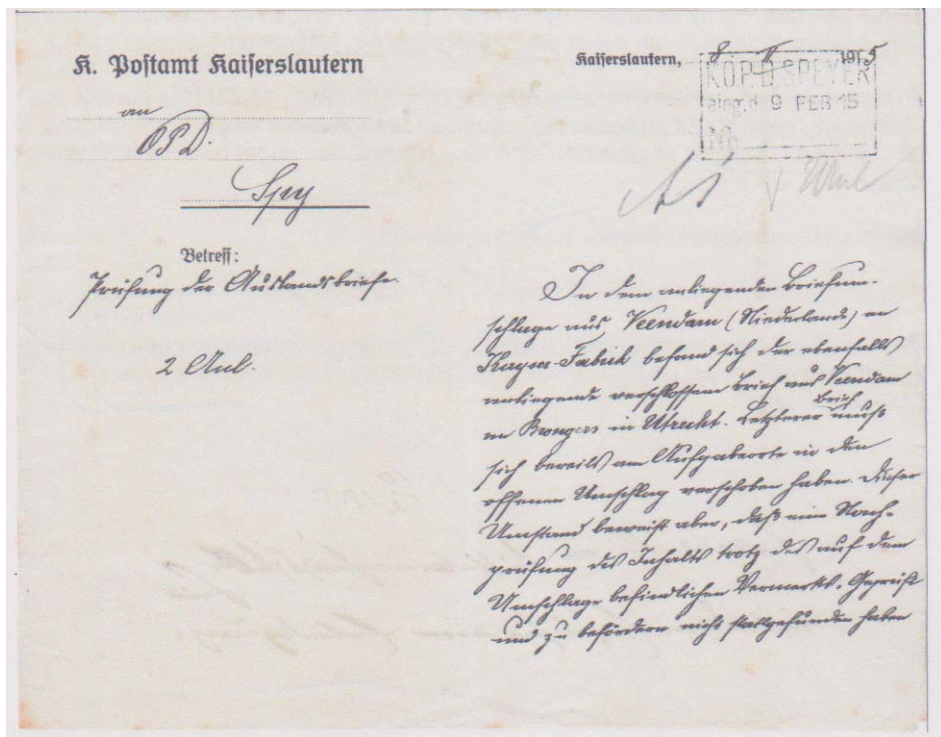 K. Postamt Kaiserslautern
an
OPD.
Spey
Betreff:
Prüfung der Auslandsbriefe.
2 Anl.
Kaiserslautern, 8 II 1915
K.O.P.D. SPEYER
eing. d. 9 FEB 15
No.
In dem anliegenden Briefum-
schlage aus Veendam (Niederlande) an
Kayser-Fabrik befand sich der ebenfalls
anliegende verschlossene Brief aus Veendam
an Brongers in Utrecht. Letzterer Brief muß
sich bereits am Aufgabeorte in den
offenen Umschlag verschoben haben. Dieser
Umstand beweist aber, daß eine Nach-
prüfung des Inhalts trotz des auf dem
Umschlage befindlichen Vermerks "Geprüft
und zu befördern" nicht stattgefunden haben